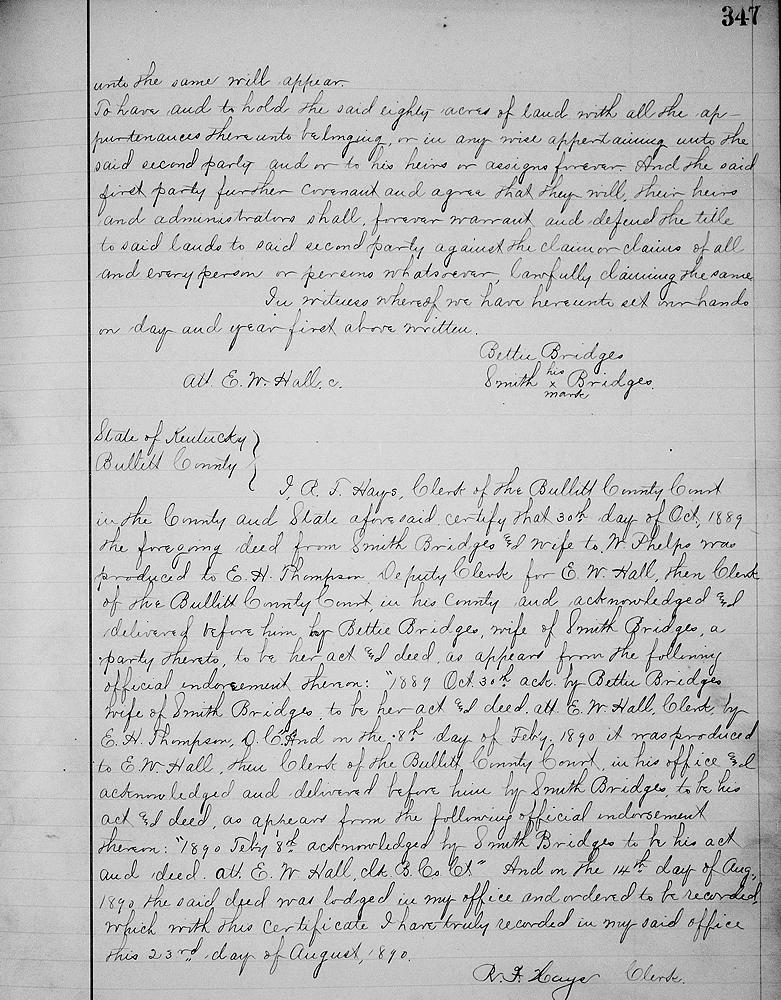 347
unto the same will appear.
To have and to hold the said eighty acres of land with all the ap-
purtenances thereunto belonging, or in any wise appertaining unto the
said second party and or to his heirs or assigns forever. And the said
first party further covenant and agree that they will, their heirs
and administrators shall, forever warrant and defend the title
to said lands to said second party against the claim or claims of all
and every person or persons whatsoever, lawfully claiming the same.
In witness whereof we have hereunto set our hands
on day and year first above written.
Bettie Bridges
Att. E. W. Hall. c. Smith his x mark Bridges.
State of Kentucky }
Bullitt County }
I, R. F. Hays, Clerk of the Bullitt County Court
in the County and State aforesaid certify that 30th day of Oct, 1889
the foregoing deed from Smith Bridges &d wife to W. Phelps was
produced to E. H. Thompson Deputy Clerk for E. W. Hall, then Clerk
of the Bullitt County Court, in his county and acknowledged &d
delivered before him, by Bettie Bridges, wife of Smith Bridges, a
party thereto, to be her act &d deed, as appears from the following
official indorsement thereon: "1889 Oct. 30th ack. by Bettie Bridges
wife of Smith Bridges, to be her act &d deed. att. E. W. Hall, Clerk, by
E. H. Thompson, D. C." And on the 8th day of Feb'y. 1890 it was produced
to E. W. Hall, then Clerk of the Bullitt County Court, in his office &d
acknowledged and delivered before him by Smith Bridges, to be his
act &d deed, as appears from the following official indorsement
thereon: "1890 Feb'y 8th acknowledged by Smith Bridges to be his act
and deed. att. E. W Hall, clk B. Co. Ct." And on the 14th day of Aug,
1890 the said deed was lodged in my office and ordered to be recorded,
which with this certificate I have truly recorded in my said office
this 23rd day of August, 1890.
R. F. Hays Clerk.